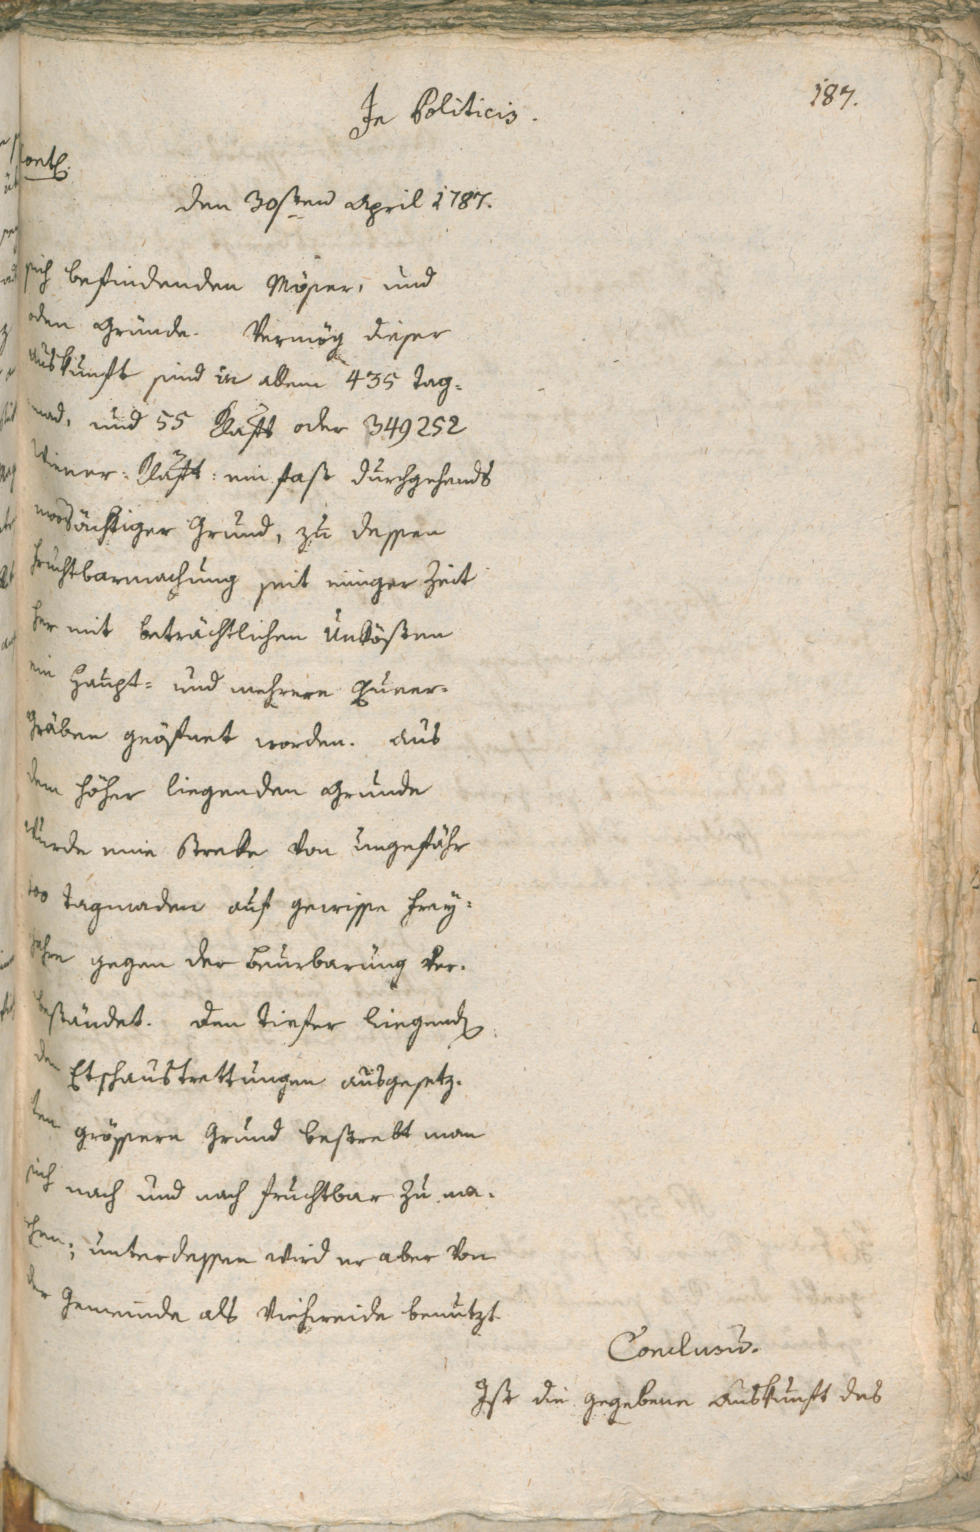 In Politicis.
187.
Cont.
den 30sten April 1787.
sich befindenden Möser, und
öden Gründe. Vermög dieser
auskunft sind in allem 435 Tag-
mad, und 55 Klaft oder 349252
Wiener-Klaft: ein fast durchgehends
moosächtiger Grund, zu dessen
fruchtbarmachung seit einiger Zeit
her mit beträchtlichen Unkösten
ein Haupt- und mehrere Queer-
gräben geöfnet worden. aus
dem höher liegenden Grunde
wurde eine Streke von ungefähr
100 Tagmaden auf gewisse Frey-
jahre gegen der Beurbarung ver-
beständet. den tiefer liegend
den Etschaustrettungen ausgesetz-
ten grössern Grund bestrebt man
sich nach und nach fruchtbar zu ma-
chen; unterdessen wird er aber von
der Gemeinde als Viehweide benutzt
Conclusum.
Ist die gegebene Auskunft des